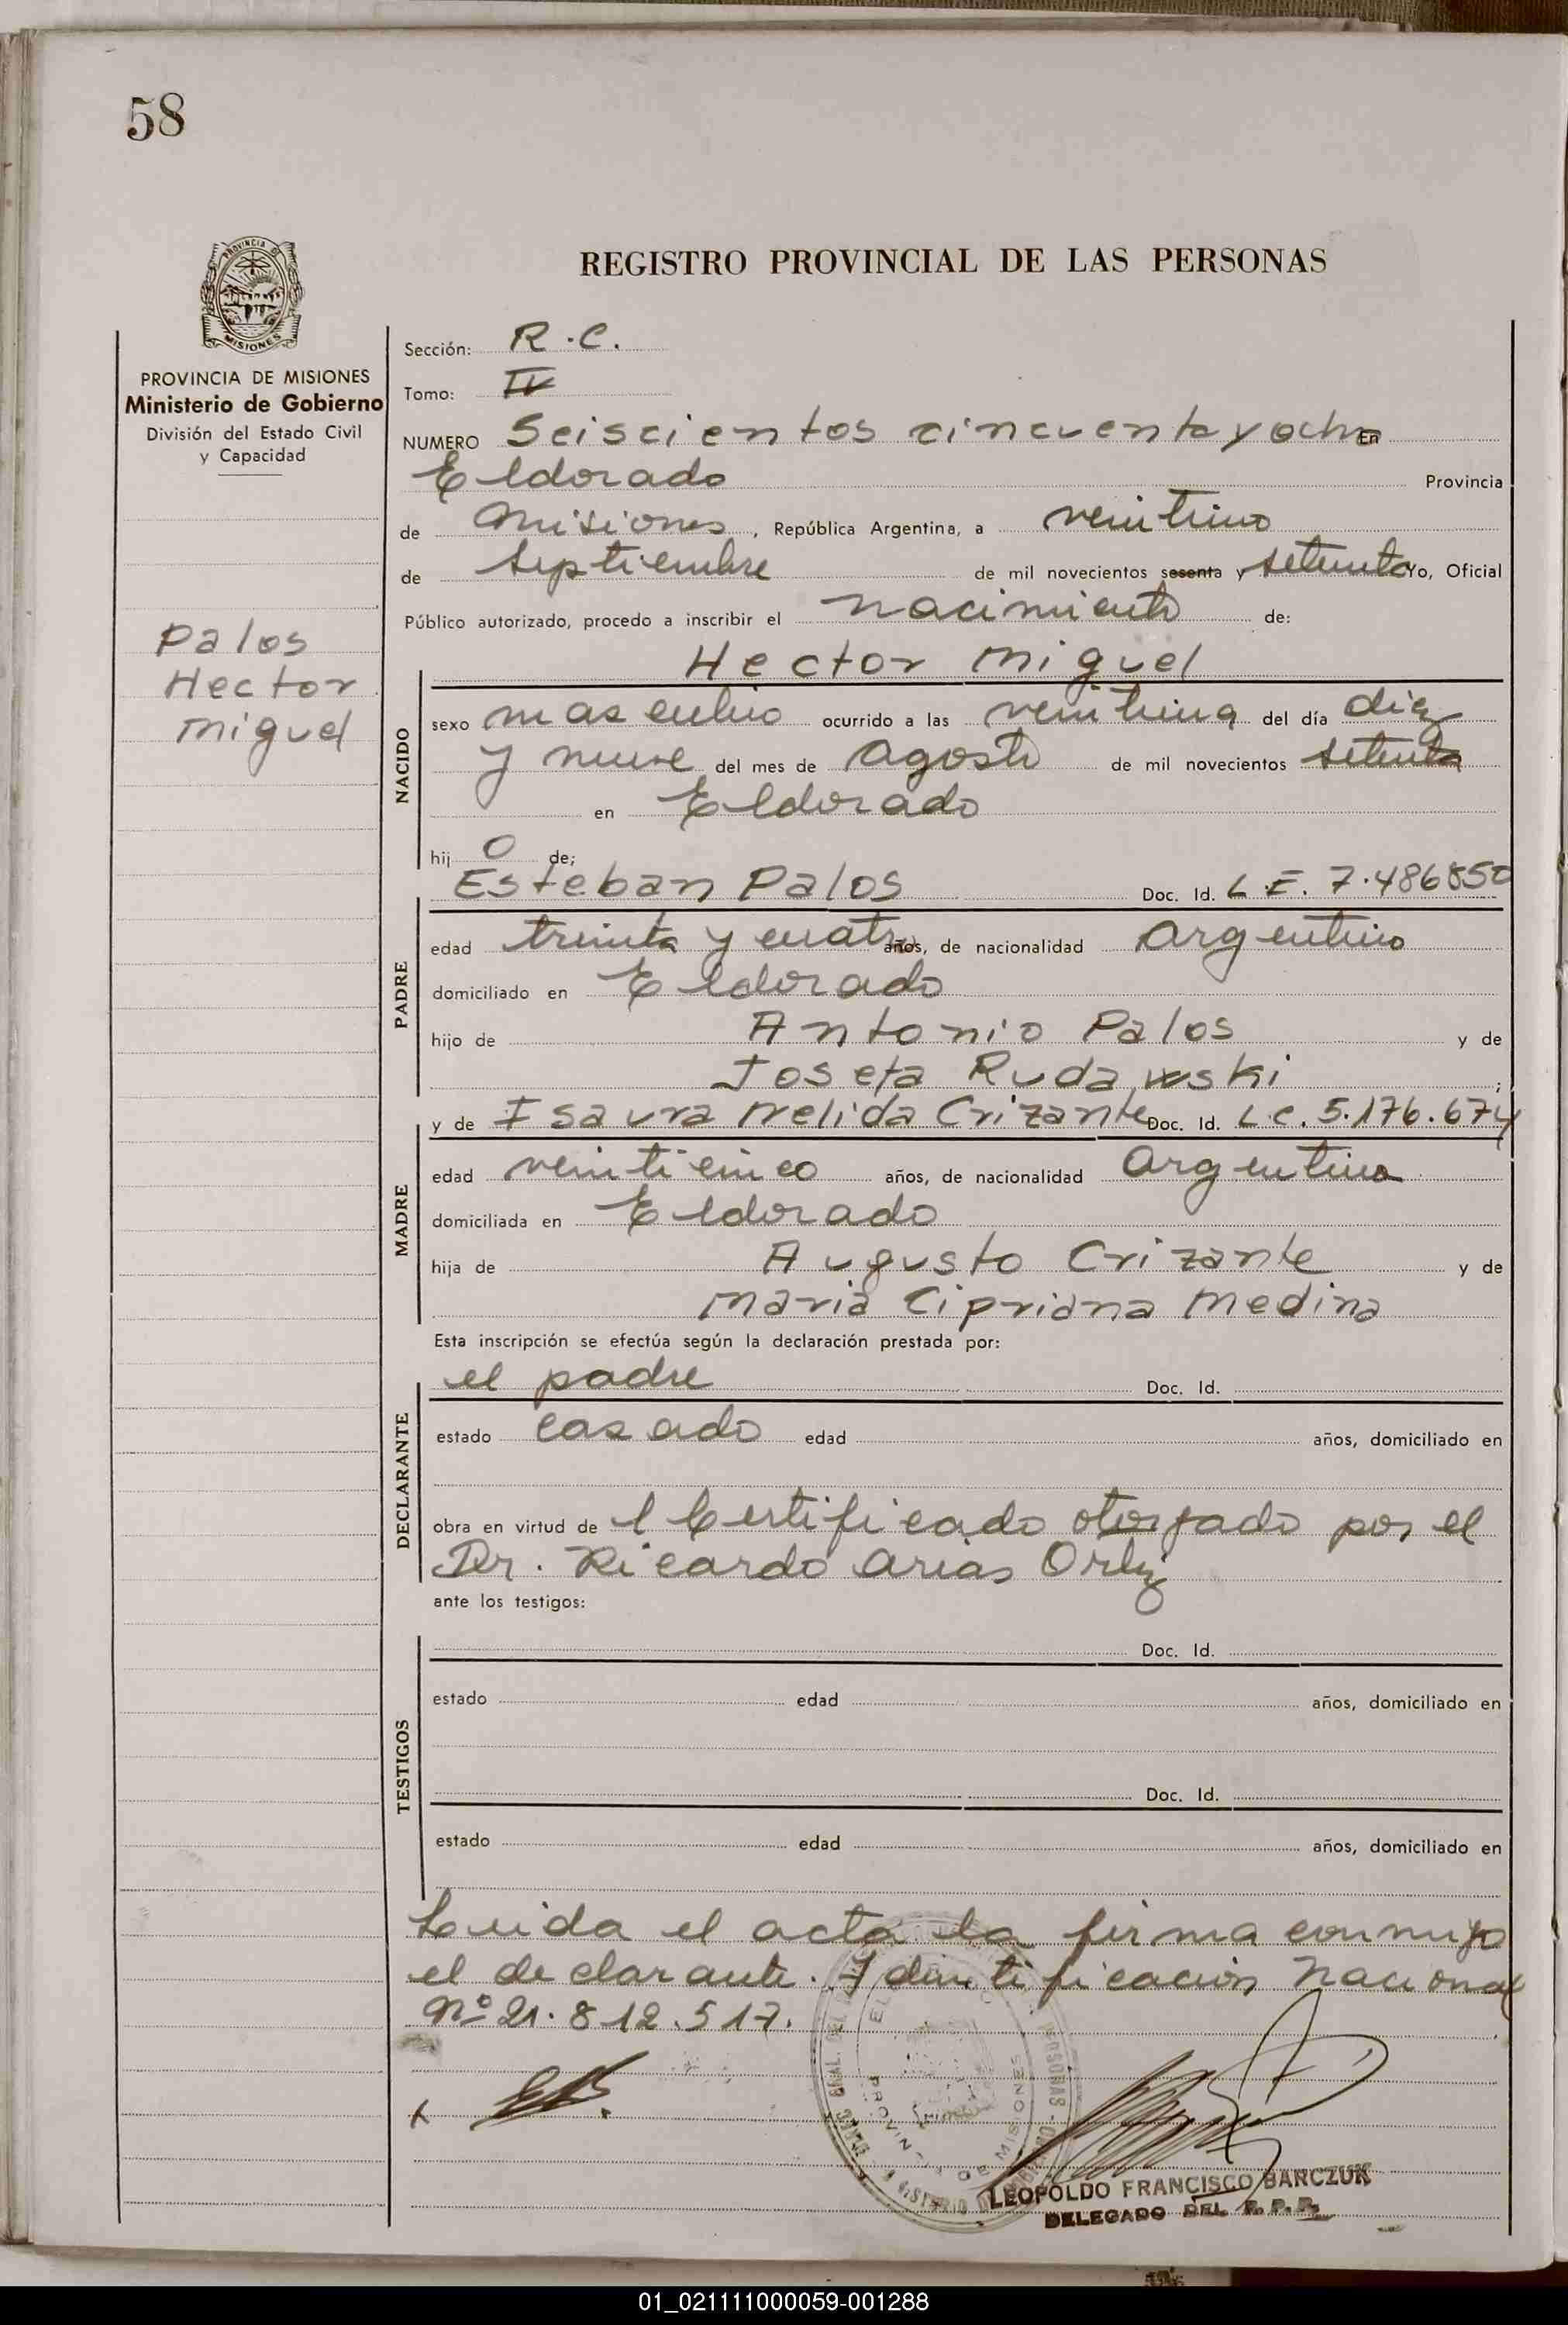 58
REGISTRO PROVINCIAL DE LAS PERSONAS
PROVINCIA DE MISIONES
Ministerio de Gobierno
División del Estado Civil
y Capacidad
Palos
Hector
Miguel
Sección: R.C.
Tomo: IV
NUMERO Seiscientos cincuenta y ocho En
Eldorado Provincia
de Misiones, República Argentina, a veintiuno
de septiembre de mil novecientos sesenta y setenta Yo, Oficial
Público autorizado, procedo a inscribir el nacimiento de:
Hector Miguel
NACIDO
sexo masculino ocurrido a las veintiuna del día diez
y nueve del mes de agosto de mil novecientos setenta
en Eldorado
hij o de;
Esteban Palos Doc. Id. L.E. 7.486850
PADRE
edad treinta y cuatro años, de nacionalidad argentino
domiciliado en Eldorado
hijo de Antonio Palos y de
Josefa Rudawski;
y de Isaura Nelida Crizante Doc. Id. L.C. 5.176.674
MADRE
edad veinticinco años, de nacionalidad argentina
domiciliada en Eldorado
hija de Augusto Crizante y de
Maria Cipriana Medina
Esta inscripción se efectúa según la declaración prestada por:
el padre Doc. Id.
DECLARANTE
estado casado edad años, domiciliado en
obra en virtud de l Certificado otorgado por el
Dr. Ricardo Arias Ortiz
ante los testigos:
Doc. Id.
TESTIGOS
estado edad años, domiciliado en
Doc. Id.
estado edad años, domiciliado en
Leida el acta la firma conmigo
el declarante. Identificación Nacional
Nº 21.812.517.
PROVINCIA DE MISIONES
LEOPOLDO FRANCISCO BARCZUK
DELEGADO DEL R.P.P.
01_021111000059-001288